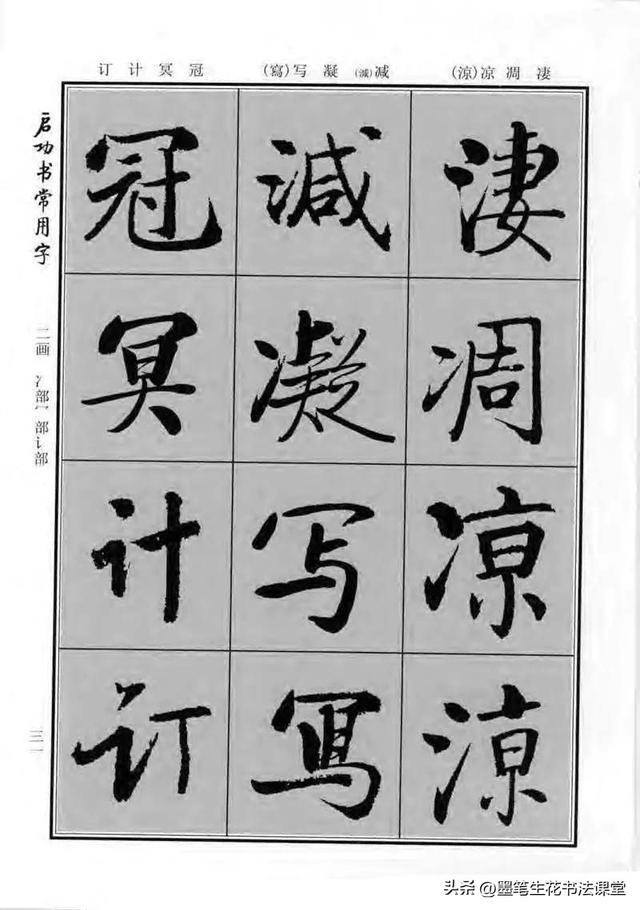 (涼)凉凋凄
(寫)写凝(減)减
订计冥冠
凄
凋
凉
涼
減
凝
写
寫
冠
冥
计
订
启功书常用字
二画 冫部冖部讠部
三一
头条 @墨笔生花书法课堂